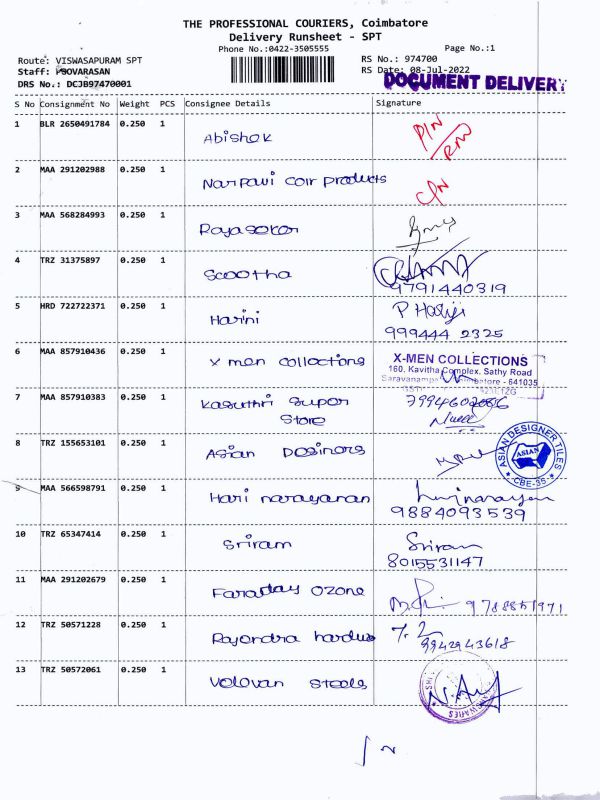 THE PROFESSIONAL COURIERS, Coimbatore
Delivery Runsheet - SPT
Phone No.:0422-3505555
Page No.:1
Route: VISWASAPURAM SPT
RS No.: 974700
Staff: POOVARASAN
RS Date: 08-Jul-2022
DRS No.: DCJB97470001
DOCUMENT DELIVERY
S No Consignment No Weight PCS Consignee Details Signature
1 BLR 2650491784 0.250 1 Abishek P/N
R/N
2 MAA 291202988 0.250 1 Narpavi coir products C/N
3 MAA 568284993 0.250 1 Rajasekar
4 TRZ 31375897 0.250 1 Scootha
9791440319
5 HRD 722722371 0.250 1 Harini P Harini
999444 2325
6 MAA 857910436 0.250 1 X men collections X-MEN COLLECTIONS
160, Kavitha Complex, Sathy Road
Saravanampatti, Coimbatore - 641035
7 MAA 857910383 0.250 1 Kasuthri Super
Store
8 TRZ 155653101 0.250 1 Asian Desiners ASIAN DESIGNER TILES
ASIAN
CBE-35
9 MAA 566598791 0.250 1 Hari narayanan Harinarayan
9884093539
10 TRZ 65347414 0.250 1 Sriram Sriram
8015531147
11 MAA 291202679 0.250 1 Faraday Ozone
12 TRZ 50571228 0.250 1 Rajendra hardus
9942943618
13 TRZ 50572061 0.250 1 Velavan Steels